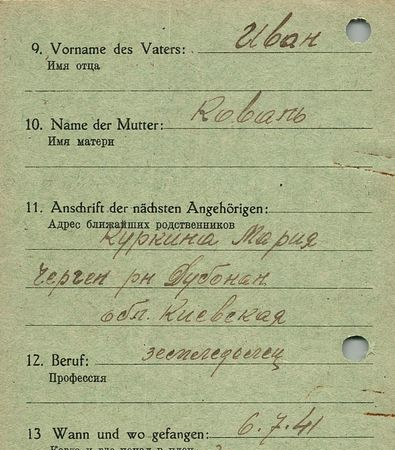 9. Vorname des Vaters: Иван
Имя отца
10. Name der Mutter: Коваль
Имя матери
11. Anschrift der nächsten Angehörigen:
Адрес ближайших родственников
Куркина Мария
рн
обл. Киевская
12. Beruf: земледелец
Профессия
13 Wann und wo gefangen: 6.7.41